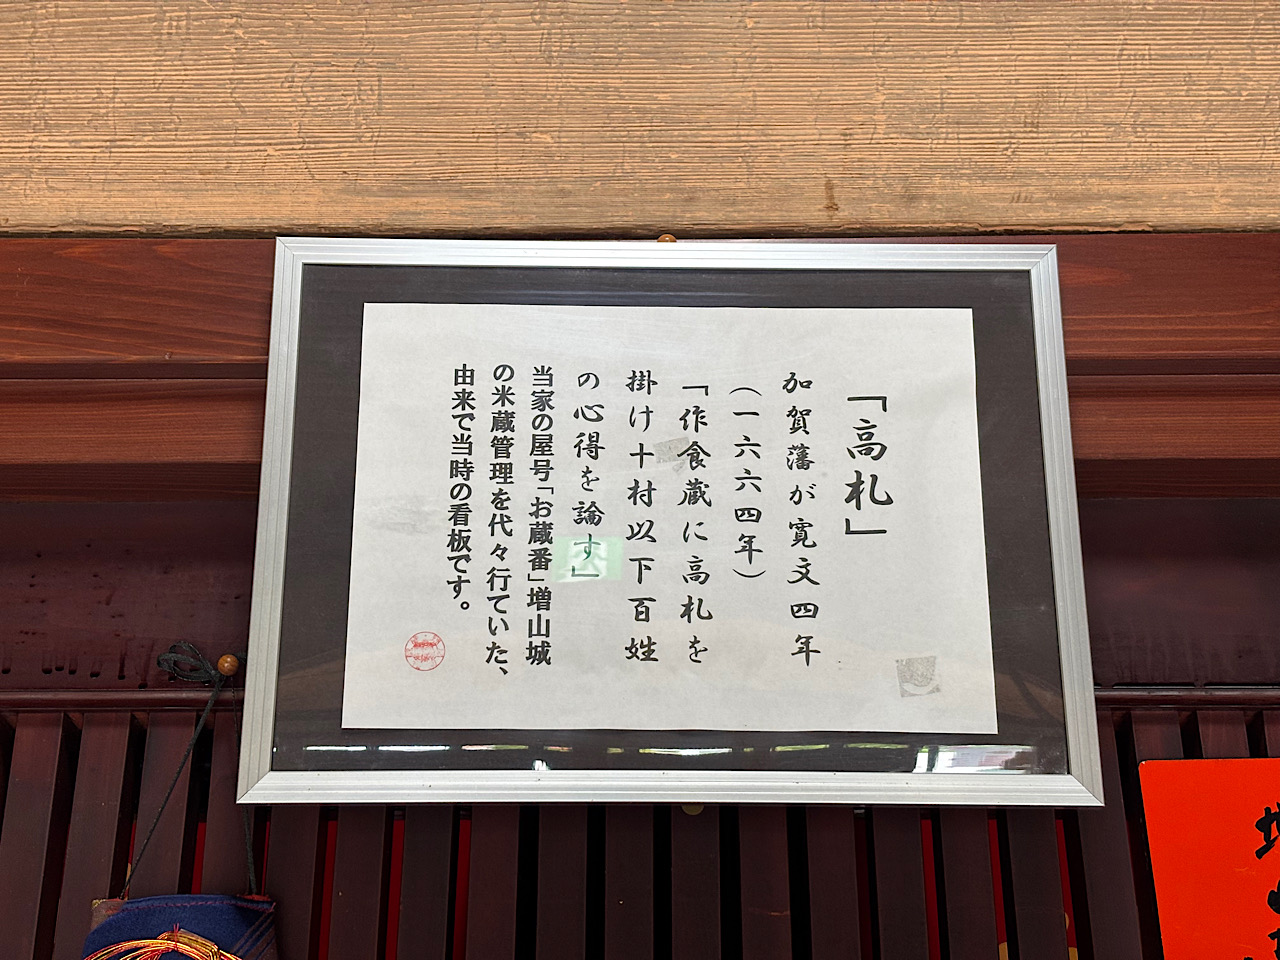 「高札」
加賀藩が寛文四年
（一六六四年）
「作食蔵に高札を
掛け十村以下百姓
の心得を論す」
当家の屋号「お蔵番」増山城
の米蔵管理を代々行ていた、
由来で当時の看板です。